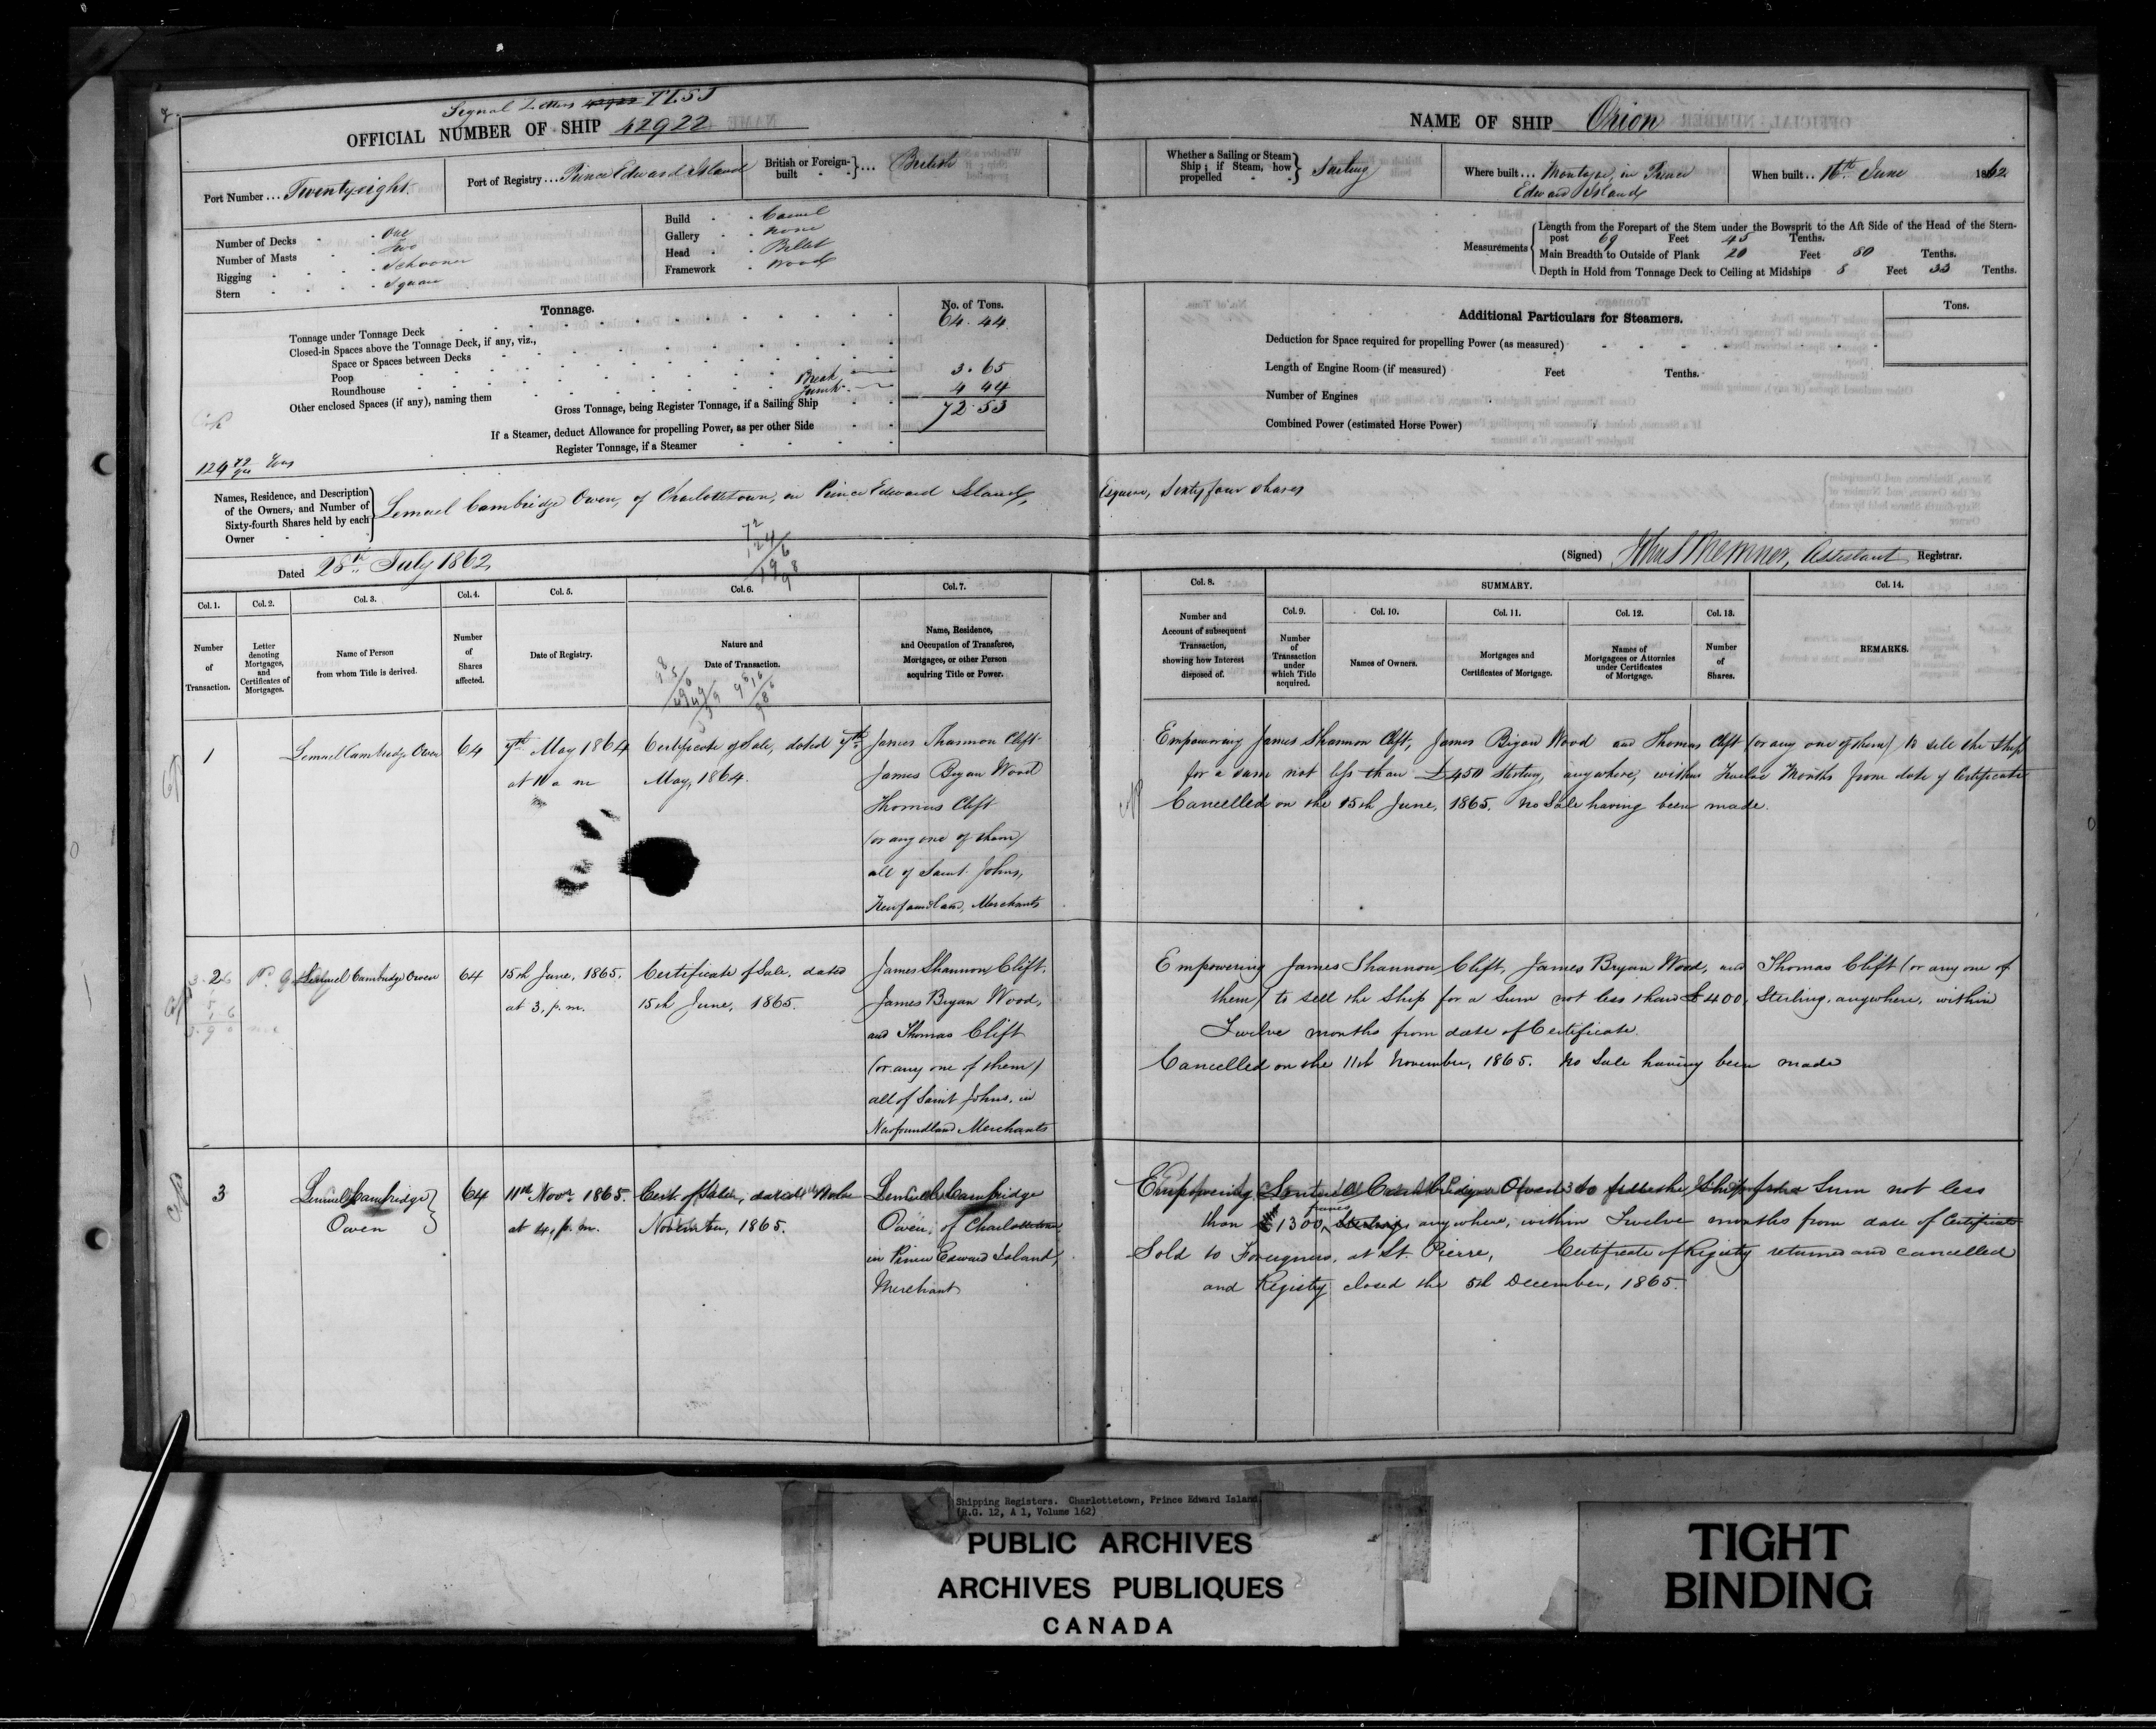 Signal Letters
OFFICIAL NUMBER OF SHIP 42922
Port Number ... Twentyeight
Port of Registry ... Prince Edward Island
British or Foreign-built ... British
Number of Decks One
Number of Masts Two
Rigging Schooner
Stern Square
Build Carvel
Gallery None
Head Billet
Framework Wood
Tonnage.
No. of Tons.
Tonnage under Tonnage Deck 64.44
Closed-in Spaces above the Tonnage Deck, if any, viz.,
Space or Spaces between Decks
Poop
Roundhouse Break 3.65
Other enclosed Spaces (if any), naming them 4 44
Gross Tonnage, being Register Tonnage, if a Sailing Ship 72.53
If a Steamer, deduct Allowance for propelling Power, as per other Side
Register Tonnage, if a Steamer
Names, Residence, and Description of the Owners, and Number of Sixty-fourth Shares held by each Owner
Lemuel Cambridge Owen, of Charlottetown, in Prince Edward Island,
Dated 28th July 1862
NAME OF SHIP Orion
Whether a Sailing or Steam Ship; if Steam, how propelled Sailing
Where built ... Montague, in Prince Edward Island
When built .. 16th June 1862
Measurements
Length from the Forepart of the Stem under the Bowsprit to the Aft Side of the Head of the Stern-
post 69 Feet 45 Tenths.
Main Breadth to Outside of Plank 20 Feet 60 Tenths.
Depth in Hold from Tonnage Deck to Ceiling at Midships 8 Feet 33 Tenths.
Additional Particulars for Steamers.
Tons.
Deduction for Space required for propelling Power (as measured)
Length of Engine Room (if measured) Feet Tenths.
Number of Engines
Combined Power (estimated Horse Power)
Esquire, Sixty four shares
(Signed) Assistant Registrar.
Col. 1.
Number of Transaction.
Col. 2.
Letter denoting Mortgages, and Certificates of Mortgages.
Col. 3.
Name of Person from whom Title is derived.
Col. 4.
Number of Shares affected.
Col. 5.
Date of Registry.
Col. 6.
Nature and Date of Transaction.
Col. 7.
Name, Residence, and Occupation of Transferee, Mortgagee, or other Person acquiring Title or Power.
Col. 8.
Number and Account of subsequent Transaction, showing how Interest disposed of.
SUMMARY.
Col. 9.
Number of Transaction under which Title acquired.
Col. 10.
Names of Owners.
Col. 11.
Mortgages and Certificates of Mortgage.
Col. 12.
Names of Mortgagees or Attornies under Certificates of Mortgage.
Col. 13.
Number of Shares.
Col. 14.
REMARKS.
1
Lemuel Cambridge Owen
64
7th May 1864
at 10 a m
Certificate of Sale, dated 7th
May, 1864.
James Shannon Clift
James Bryan Wood
Thomas Clift
(or any one of them)
all of Saint Johns,
Newfoundland, Merchants
Empowering James Shannon Clift, James Bryan Wood and Thomas Clift (or any one of them) to sell the Ship
for a sum not less than £450 Sterling, anywhere, within Twelve Months from date of Certificate
Cancelled on the 15th June, 1865. No Sale having been made.
2
Lemuel Cambridge Owen
64
15th June, 1865.
at 3, p. m.
Certificate of Sale, dated
15th June, 1865.
James Shannon Clift,
James Bryan Wood,
and Thomas Clift
(or any one of them)
all of Saint Johns, in
Newfoundland Merchants
Empowering James Shannon Clift, James Bryan Wood, and Thomas Clift (or any one of
them) to sell the Ship for a Sum not less than £400, Sterling, anywhere, within
Twelve months from date of Certificate.
Cancelled on the 11th November, 1865. No Sale having been made
3
Lemuel Cambridge
Owen
64
11th Novr 1865.
at 4, p. m.
Cert of Sale, dated
November, 1865.
Lemuel Cambridge
Owen, of Charlottetown
in Prince Edward Island,
Merchant
Empowering Lemuel Cambridge Owen to sell the Ship for a Sum not less
than 1300 francs, anywhere, within Twelve months from date of Certificate
Sold to Foreigners, at St. Pierre, Certificate of Registry returned and cancelled
and Registry closed the 5th December, 1865.
Shipping Registers. Charlottetown, Prince Edward Island
(R.G. 12, A 1, Volume 162)
PUBLIC ARCHIVES
ARCHIVES PUBLIQUES
CANADA
TIGHT
BINDING